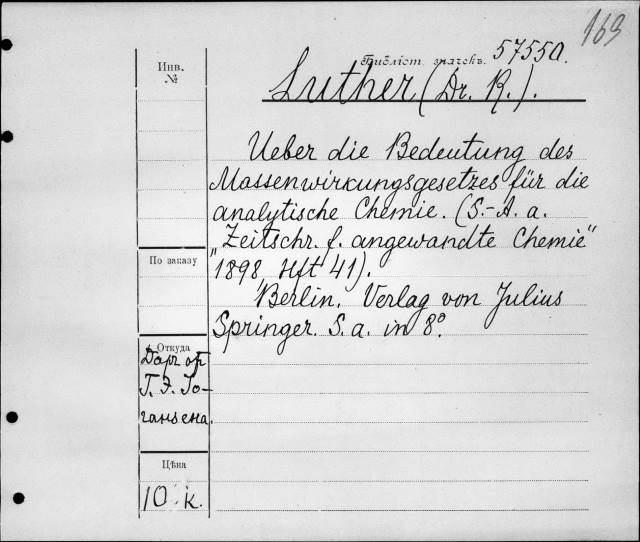 163
Инв.
№
Библіот. значекъ. 57550.
Luther (Dr. R.).
Ueber die Bedeutung des
Massenwirkungsgesetzes für die
analytische Chemie. (S.-A. a.
„Zeitschr. f. angewandte Chemie"
1898, Hft 41).
Berlin. Verlag von Julius
Springer. S. a. in 8°.
По заказу
Откуда
Даръ отъ
Г. Э. Іо-
гансена.
Цѣна
10 к.